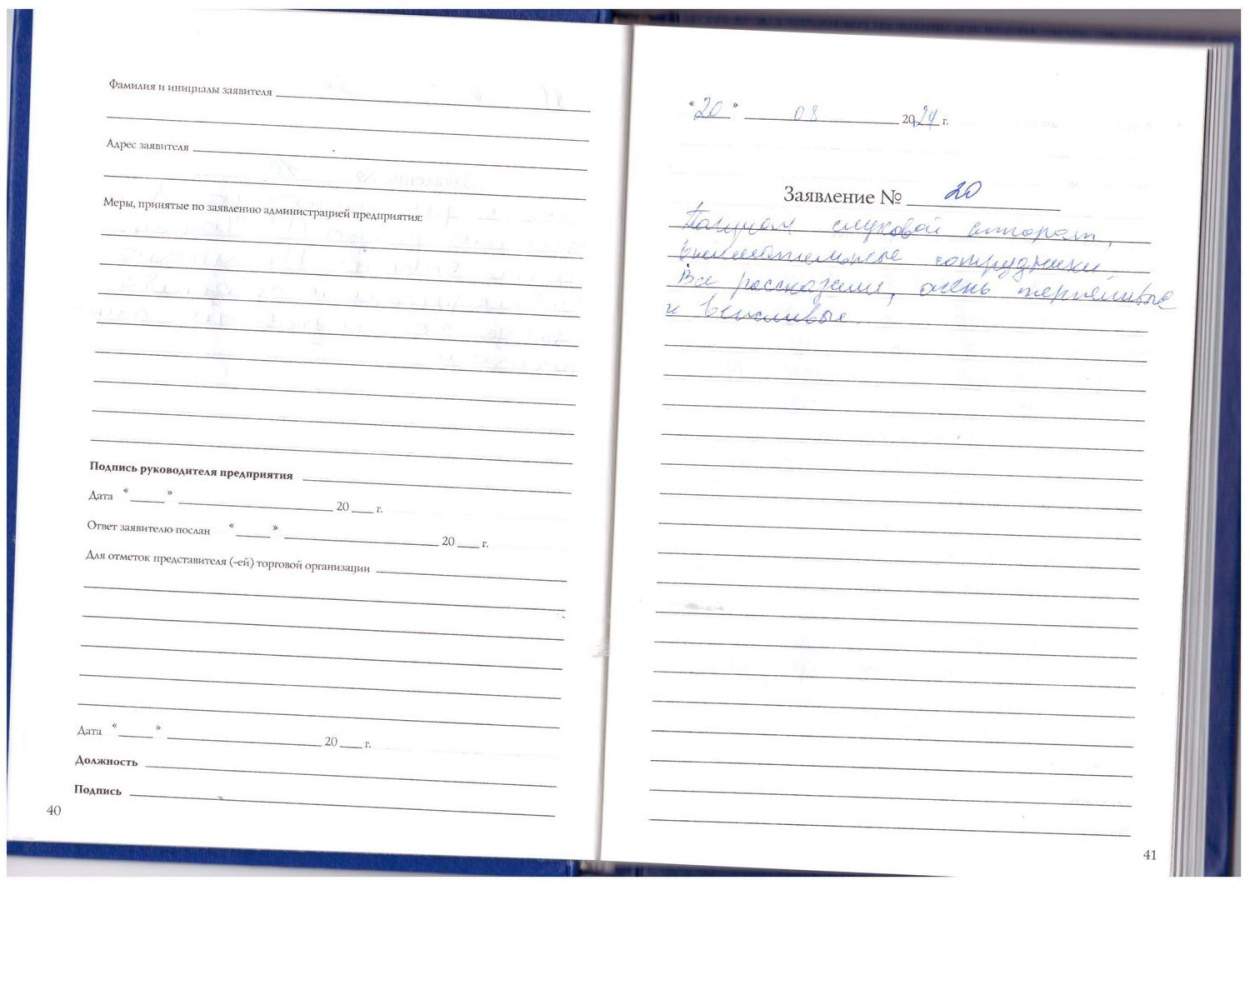 Фамилия и инициалы заявителя
Адрес заявителя
Меры, принятые по заявлению администрацией предприятия:
Подпись руководителя предприятия
Дата " " 20 г.
Ответ заявителю послан " " 20 г.
Для отметок представителя (-ей) торговой организации
Дата " " 20 г.
Должность
Подпись
40
"20" 08 2024 г.
Заявление № 20
слуховой аппарат,
внимательные сотрудники.
Все рассказали, очень терпеливые
и вежливые
41